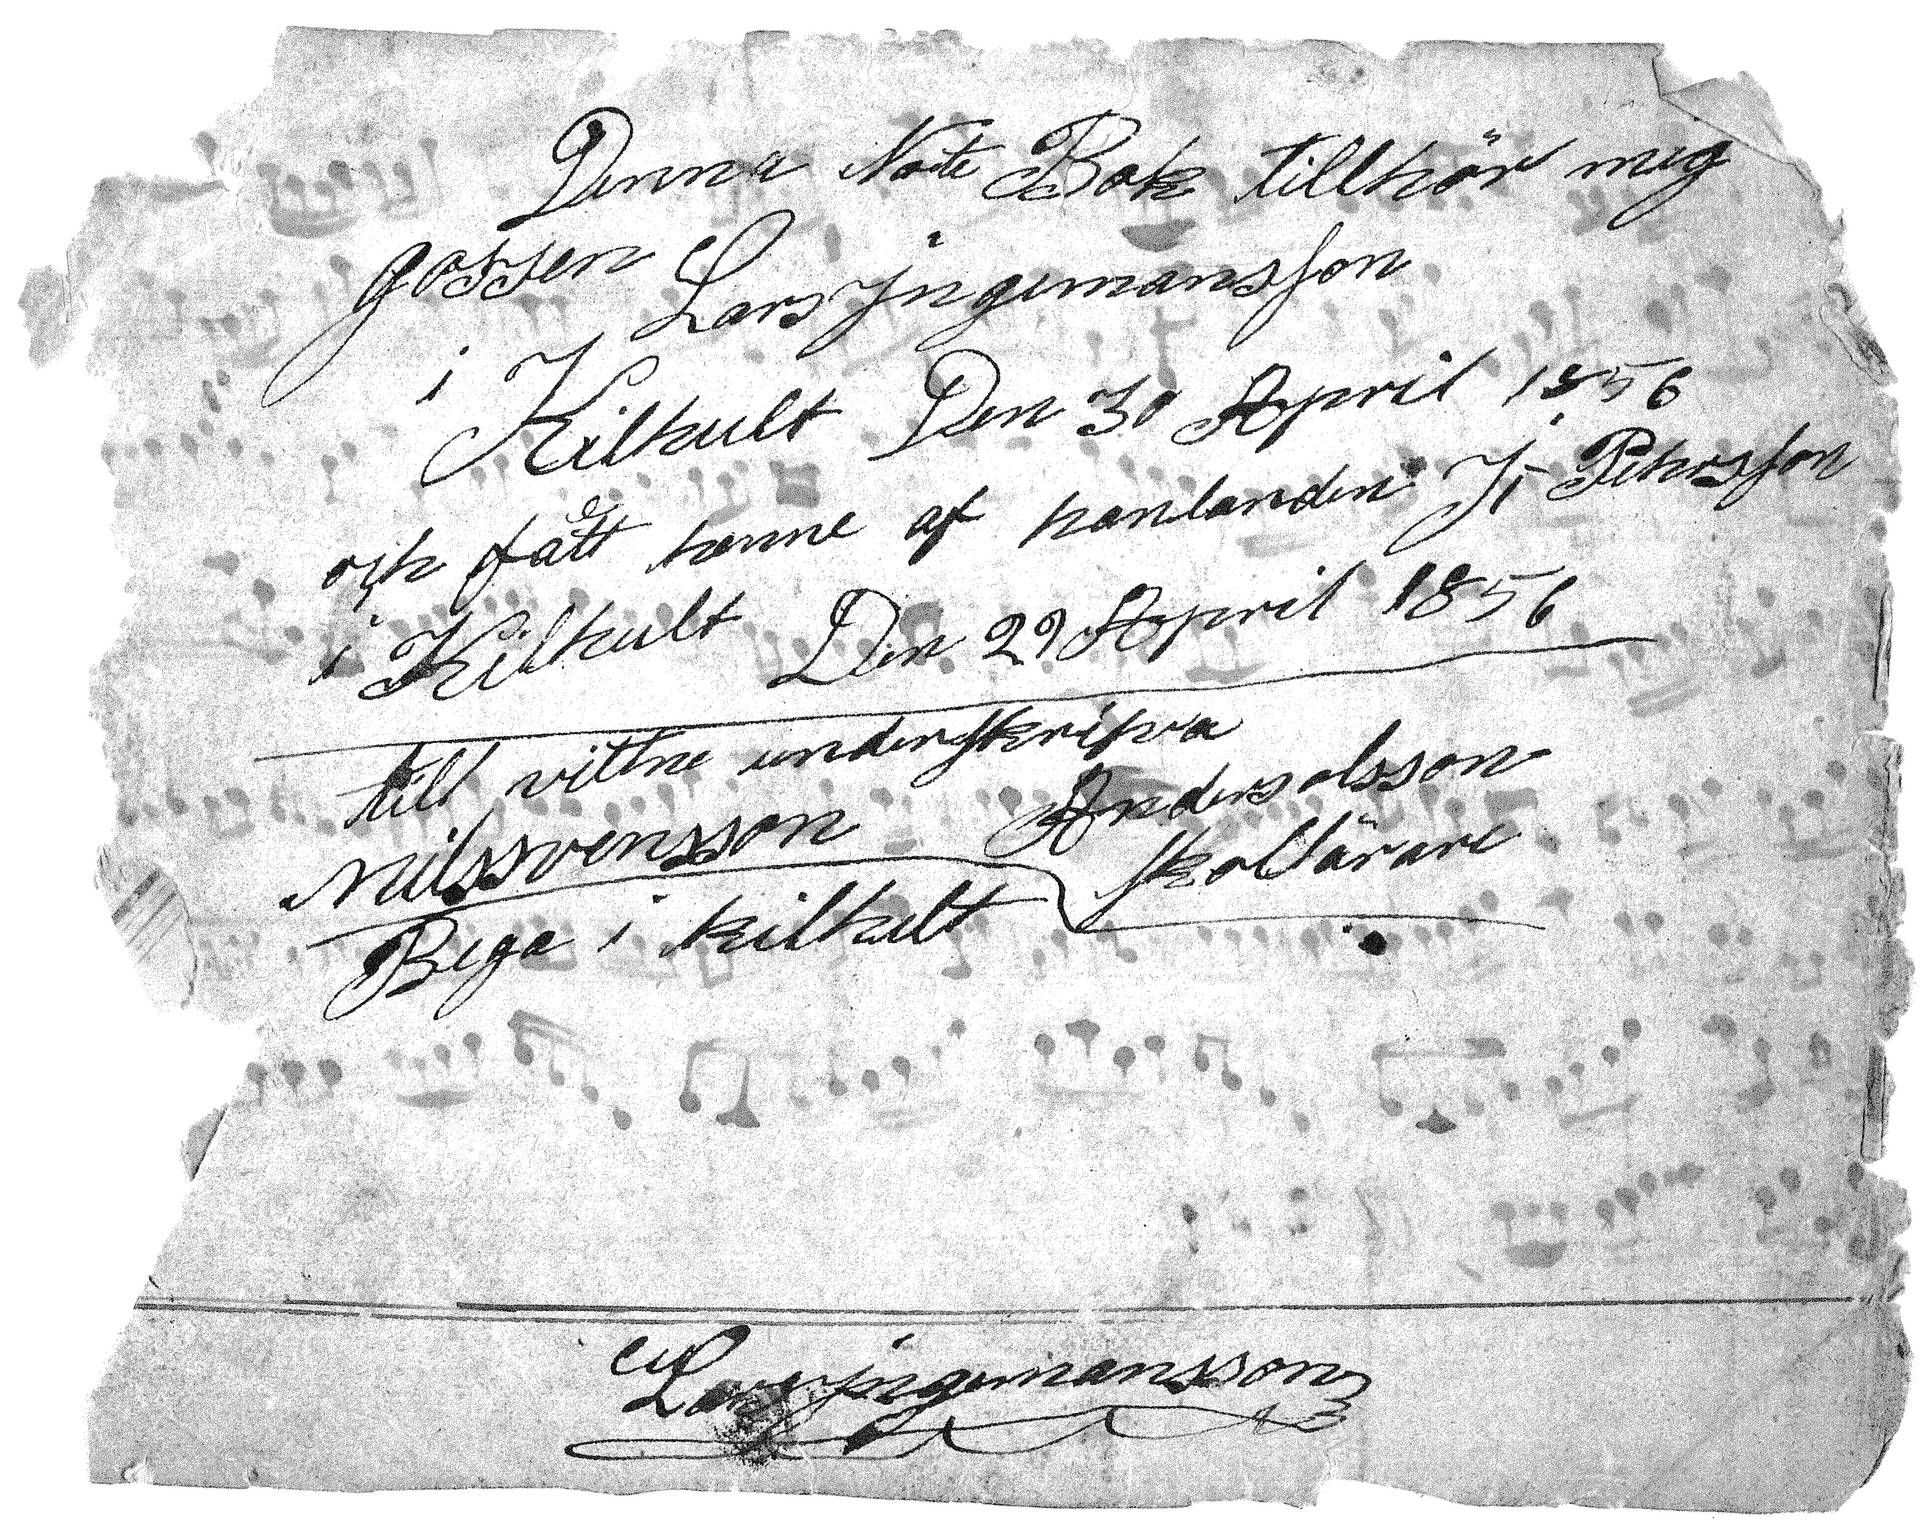 Denna Note Bok tillhör mig
gossen Lars Jngemansson
i Kilhult Den 30 April 1856
och fått henne af hanlanden J. Petersson
i Kilhult Den 29 April 1856
till vittne underskrifva
nilssvensson Andersolsson
skollärare
Bega i kilhult
Lars jngemansson